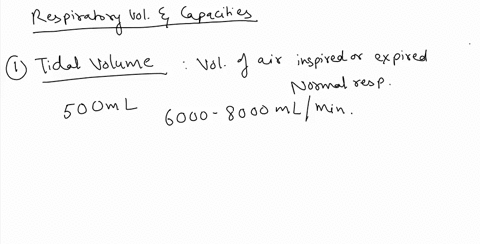 Respiratory Vol. & Capacities
① Tidal Volume : Vol. of air inspired or expired
Normal resp.
500mL 6000-8000 mL/min.